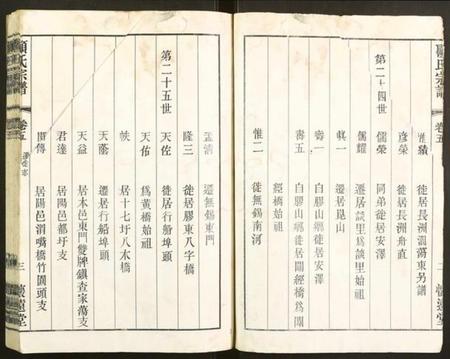 顧氏宗譜
卷五
第二十四世
進績 徙居長洲㵎蕩東另譜
彥榮 徙居長洲甪直
儒榮 同弟徙居安澤
儒耀 遷居談里爲談里始祖
真一 遷居崑山
壽一 白膠山鄉徙居安澤
壽五 白膠山鄉徙居閶經橋爲閶
經橋始祖
惟二 徙無錫南河
二 懷遠堂
孟清 遷無錫東門
隆三 徙居膠東八字橋
第二十五世
天佐 徙居行船埠頭
天佑 爲黃橋始祖
居十七圩八木橋
天蔭 遷居行船埠頭
天益 居本邑東門雙牌鎮査家蕩支
君達 居陽邑都圩支
傳 居陽邑消嘴橋竹園頭支
顧氏宗譜
卷五
三 懷遠堂